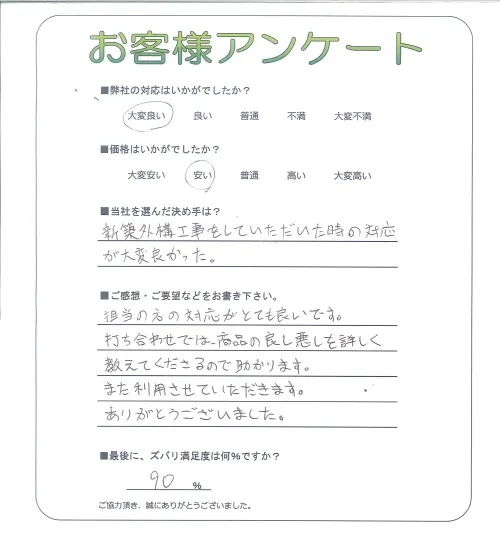 お客様アンケート
■弊社の対応はいかがでしたか？
大変良い 良い 普通 不満 大変不満
■価格はいかがでしたか？
大変安い 安い 普通 高い 大変高い
■当社を選んだ決め手は？
新築外構工事をしていただいた時の対応
が大変良かった。
■ご感想・ご要望などをお書き下さい。
担当の方の対応がとても良いです。
打ち合わせでは、商品の良し悪しを詳しく
教えてくださるので助かります。
また利用させていただきます。
ありがとうございました。
■最後に、ズバリ満足度は何％ですか？
90 %
ご協力頂き、誠にありがとうございました。